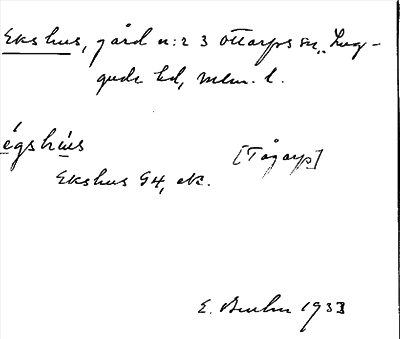 Ekshus, gård n:r 3 Ottarps sn, Lug-
gude hd, Mlm. l.
égshùs [Tågarp]
Ekshus G4, ek.
E. 1933